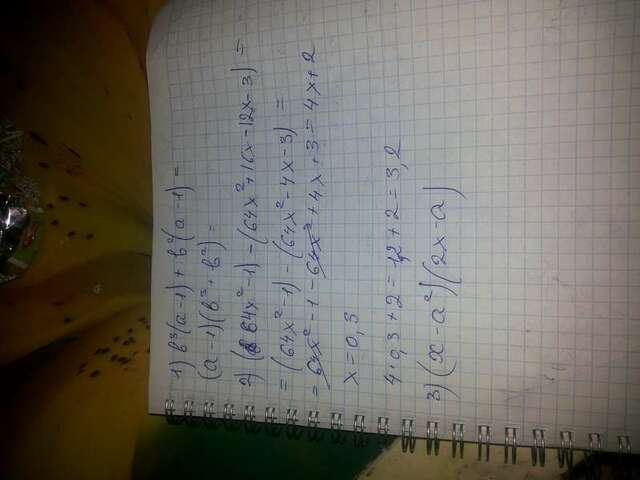 1) b³(a-1)+b²(a-1)=
(a-1)(b³+b²)=
2) (64x²-1)-(64x²+16x-12x-3)=
=(64x²-1)-(64x²-4x-3)=
=64x²-1-64x²+4x+3=4x+2
x=0,3
4·0,3+2=1,2+2=3,2
3) (x-a²)(2x-a)